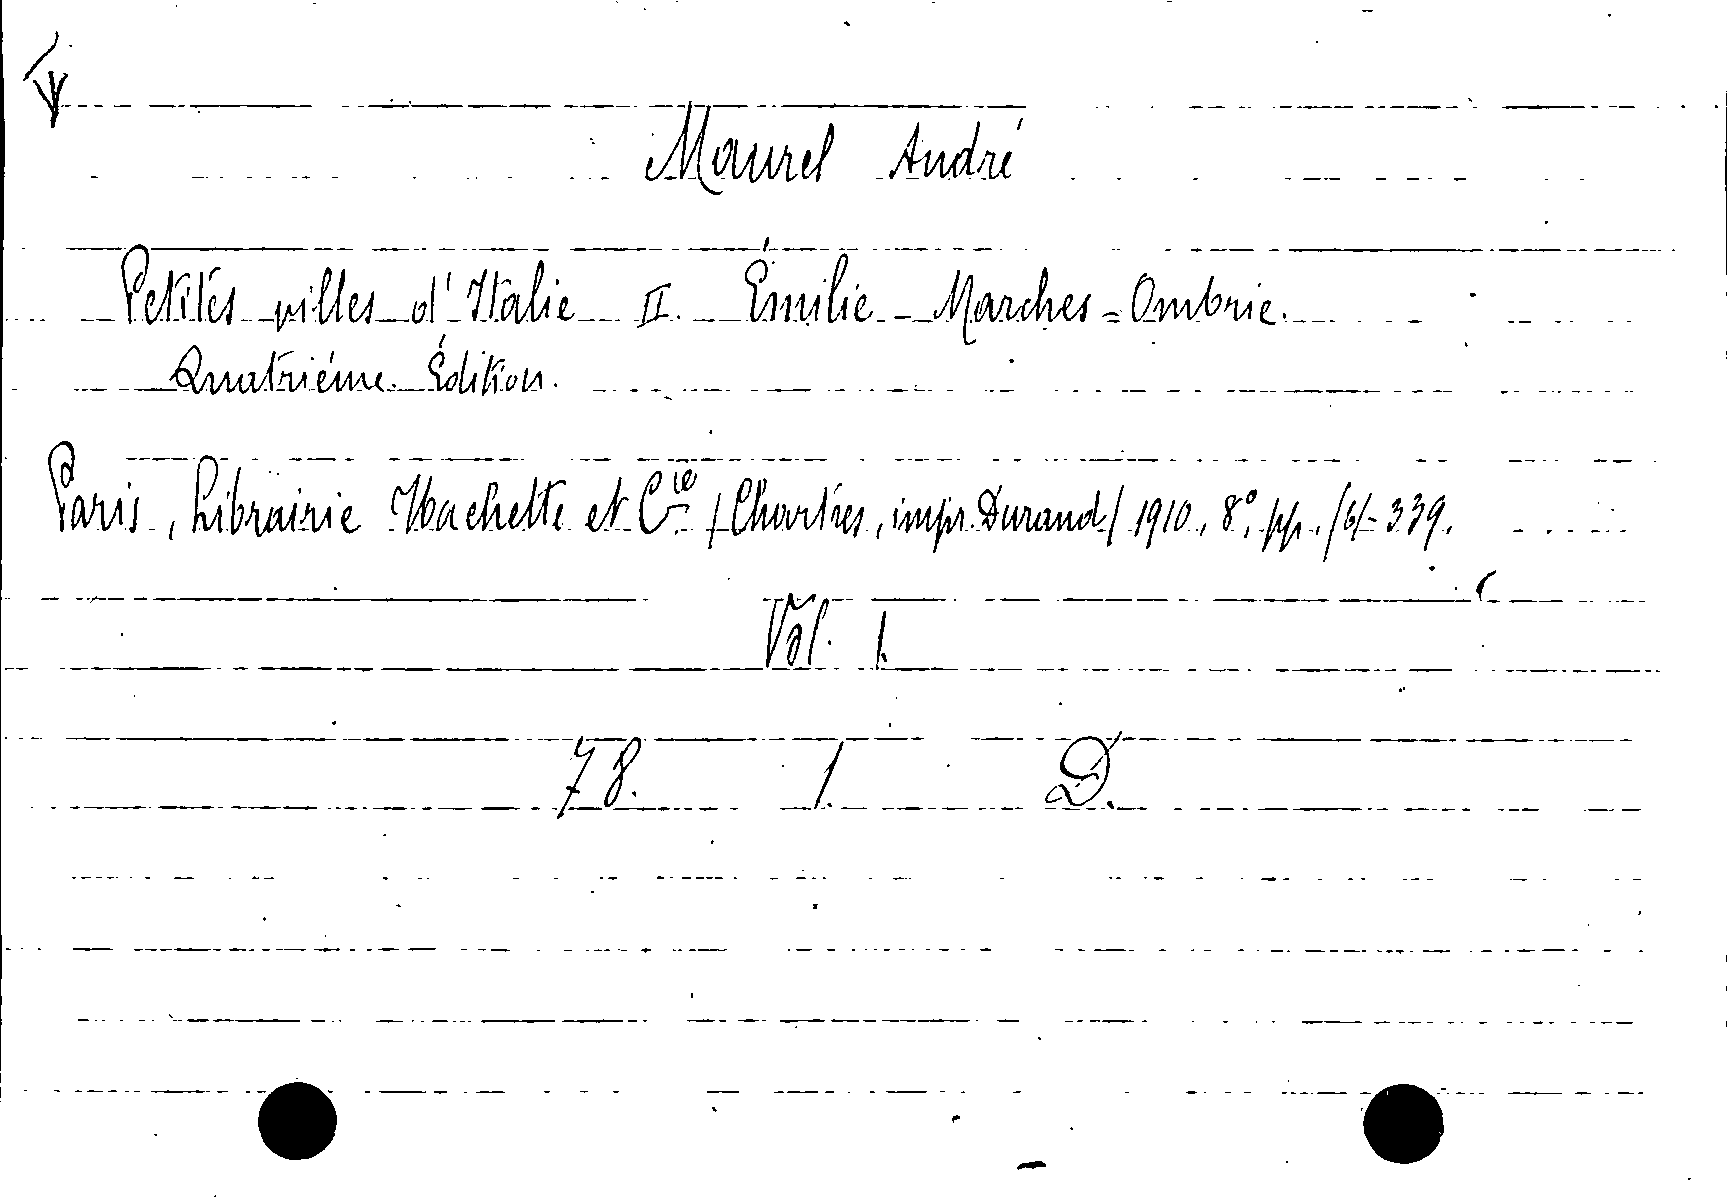 Maurel André
Petites villes d'Italie II. Émilie - Marches = Ombrie.
Quatriéme Édition.
Paris, Librairie Hachette et Cie /Chartres, impr. Durand/ 1910, 8°, pp. /6/-339.
Vol. 1.
78. 1. D.